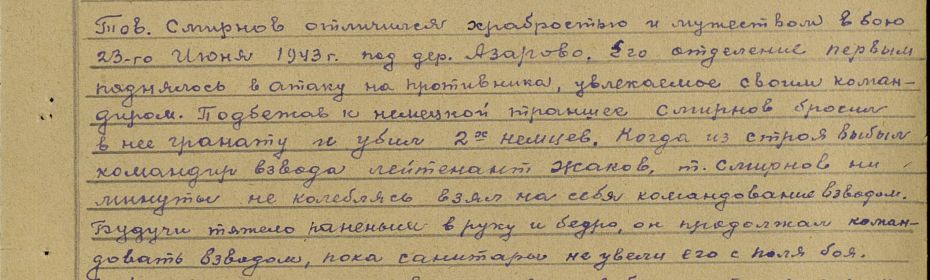 Тов. Смирнов отличился храбростью и мужеством в бою
23-го Июня 1943 г. под дер. Азарово. Его отделение первым
поднялось в атаку на противника, увлекаемое своим коман-
диром. Подбежав к немецкой траншее Смирнов бросил
в нее гранату и убил 2х немцев. Когда из строя выбыл
командир взвода лейтенант Жаков, т. Смирнов ни
минуты не колеблясь взял на себя командование взводом.
Будучи тяжело раненым в руку и бедро, он продолжал коман-
довать взводом, пока санитары не увели его с поля боя.